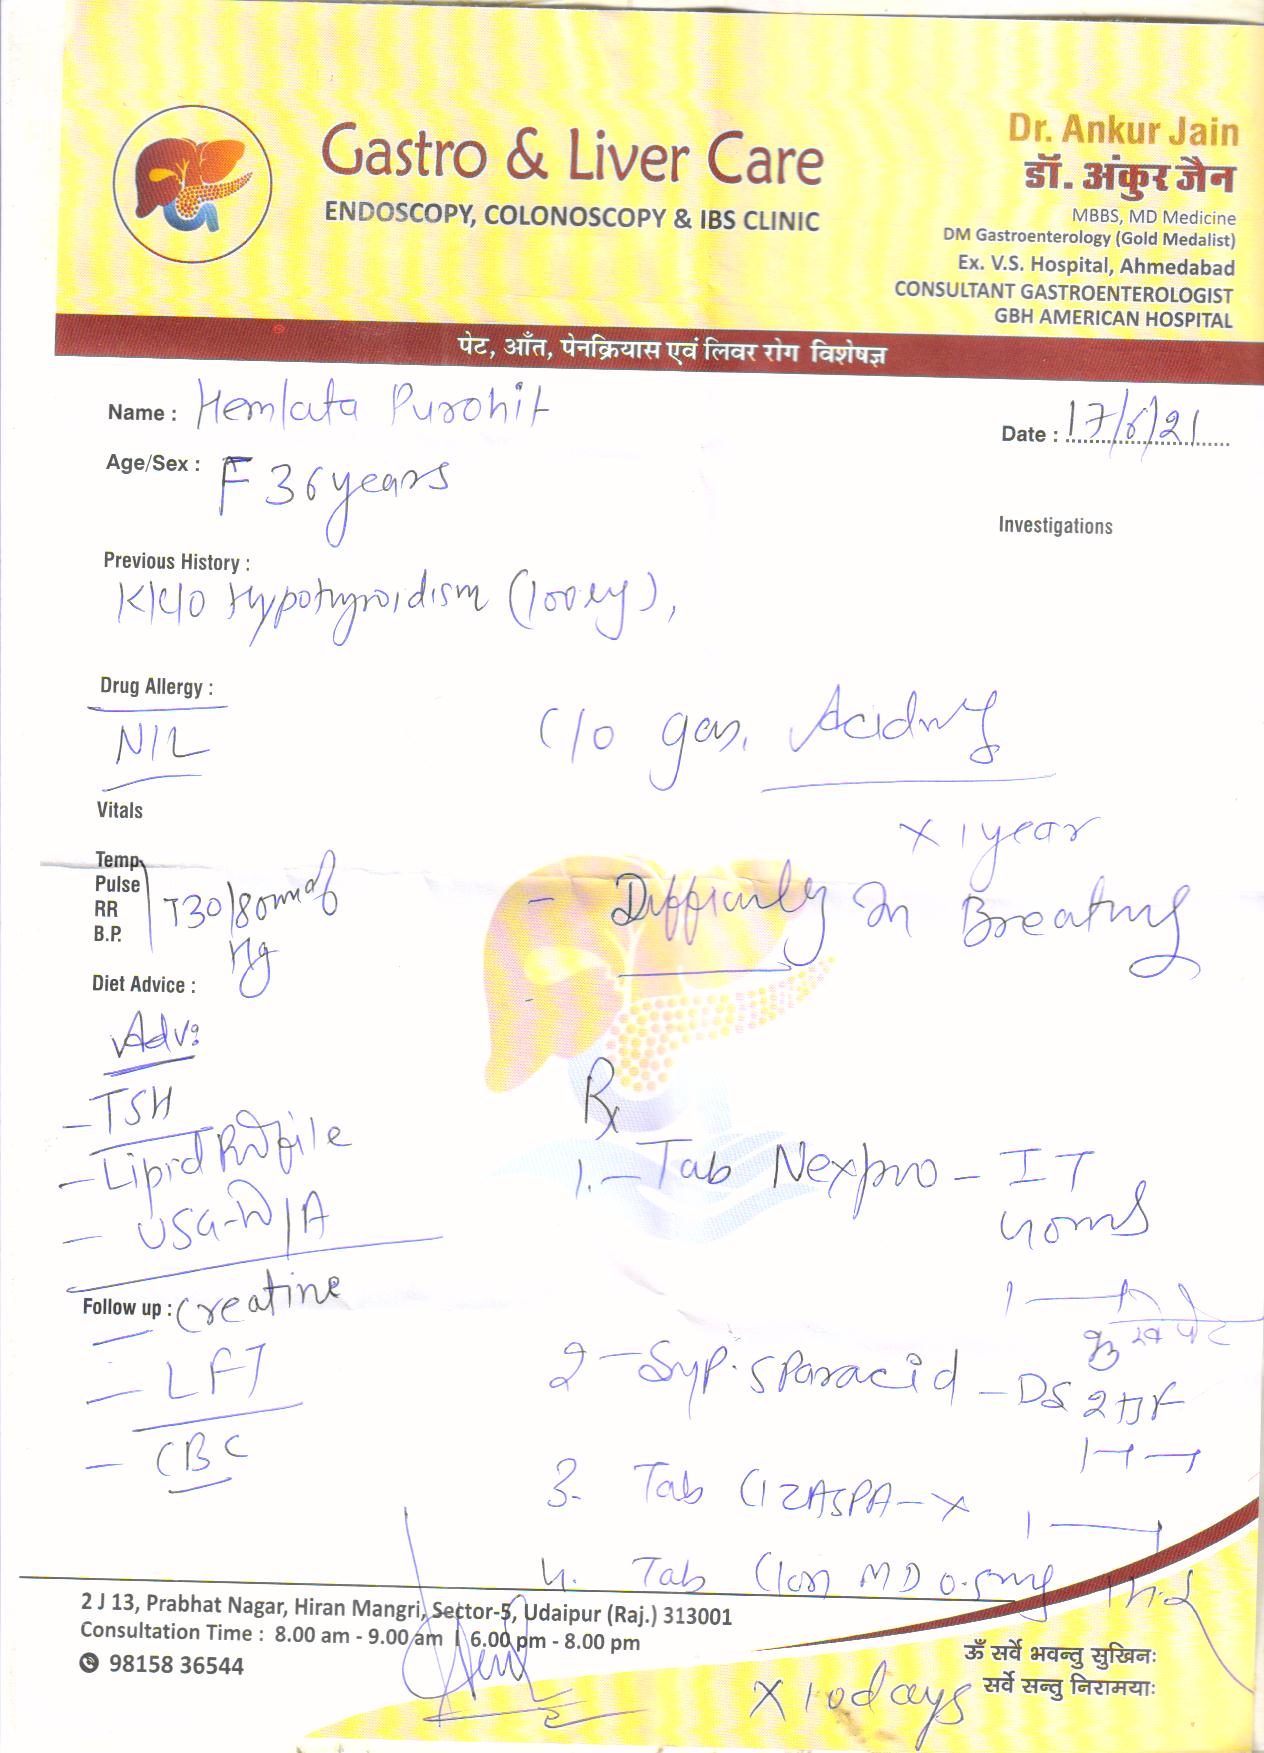 Gastro & Liver Care
ENDOSCOPY, COLONOSCOPY & IBS CLINIC
Dr. Ankur Jain
डॉ. अंकुर जैन
MBBS, MD Medicine
DM Gastroenterology (Gold Medalist)
Ex. V.S. Hospital, Ahmedabad
CONSULTANT GASTROENTEROLOGIST
GBH AMERICAN HOSPITAL
पेट, आँत, पेनक्रियास एवं लिवर रोग विशेषज्ञ
Name : Hemlata Purohit
Date : 17/6/21
Age/Sex : F 36 years
Investigations
Previous History :
K/C/O Hypothyroidism
Drug Allergy :
NIL
C/O gas, Acidity
Vitals
x 1 year
Temp
Pulse
RR
B.P.
130/80 mm of
Hg
- Difficulty In Breathing
Diet Advice :
Adv:
- TSH
- Lipid Profile
- USG-W/A
Rx
1. - Tab Nexpro - IT
40mg
Follow up : Creatine
- LFT
- CBC
2 - Syp. Sparacid - DS
3. Tab CIZASPA-X
4. Tab Clon MD 0.5mg
2 J 13, Prabhat Nagar, Hiran Mangri, Sector-5, Udaipur (Raj.) 313001
Consultation Time : 8.00 am - 9.00 am | 6.00 pm - 8.00 pm
98158 36544
ॐ सर्वे भवन्तु सुखिनः
सर्वे सन्तु निरामयाः
x 10 days